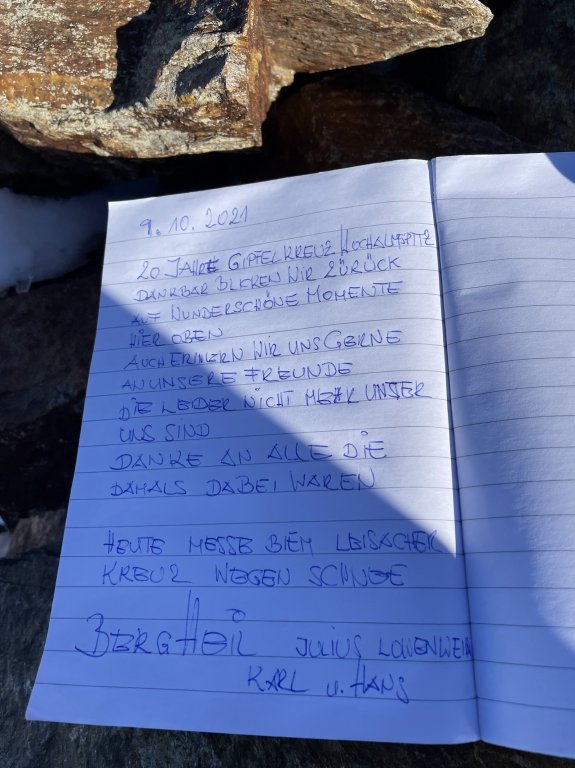 9.10.2021
20 JAHRE GIPFELKREUZ HOCHALMSPITZ
DANKBAR BLICKEN WIR ZURÜCK
AUF WUNDERSCHÖNE MOMENTE
HIER OBEN
AUCH ERINNERN WIR UNS GERNE
AN UNSERE FREUNDE
DIE LEIDER NICHT MEHR UNTER
UNS SIND
DANKE AN ALLE DIE
DAMALS DABEI WAREN
HEUTE MESSE BIEM LEISACHER
KREUZ WEGEN SCHNEE
BERGHEIL JULIUS LOWENWEIN
KARL u. HANS